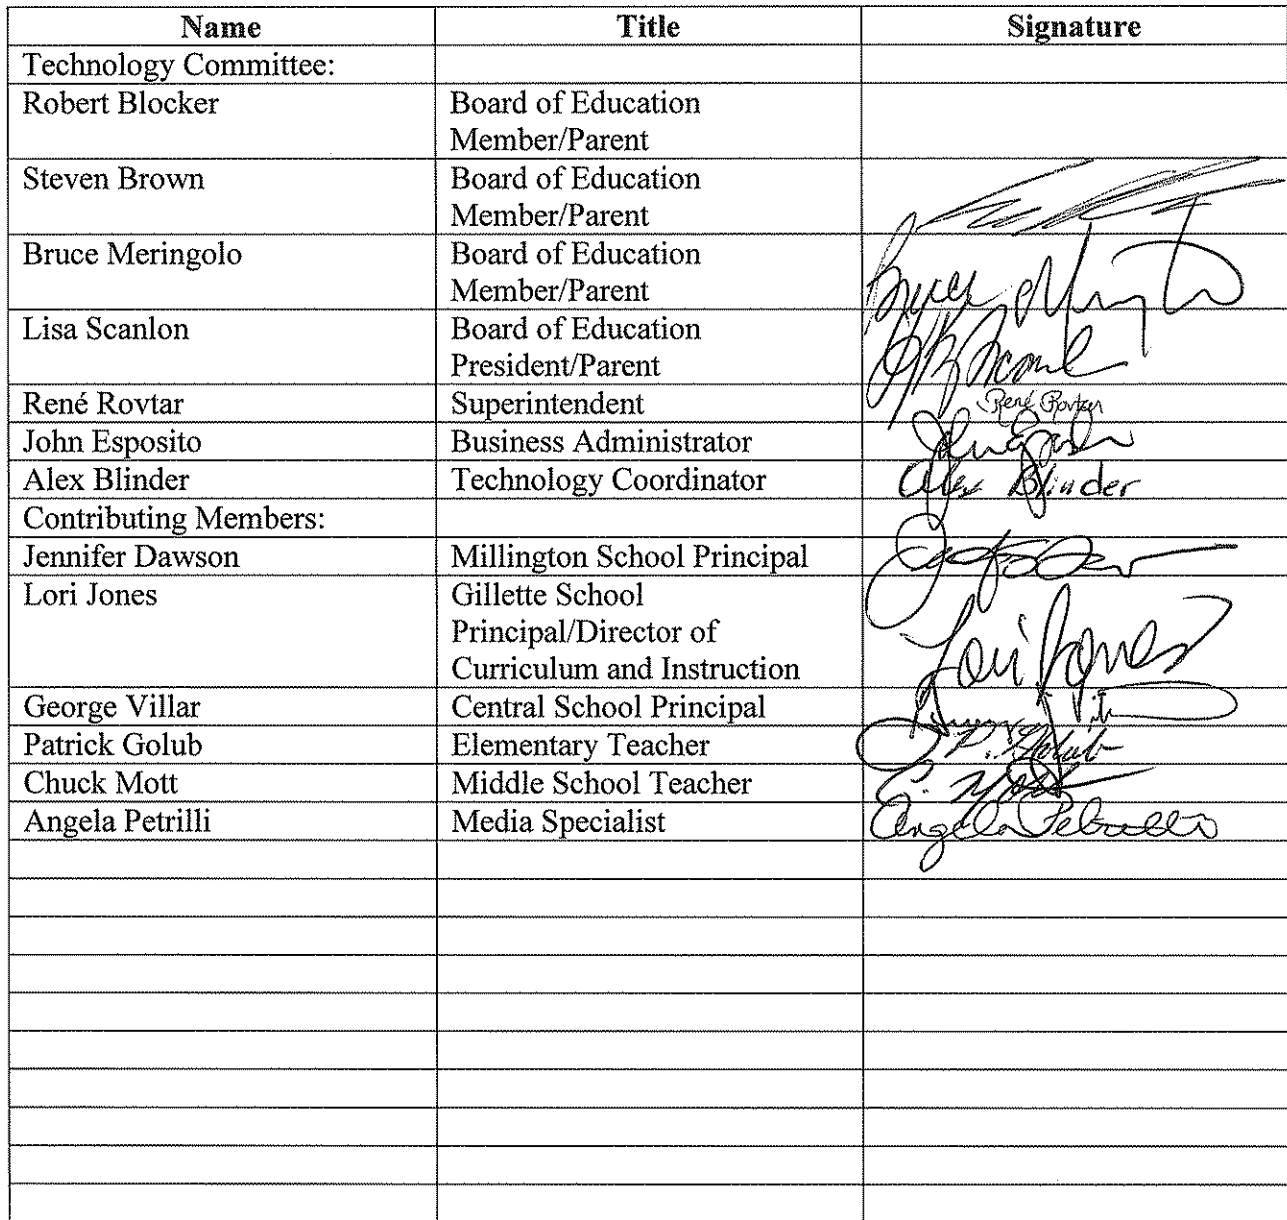 Name Title Signature
Technology Committee:
Robert Blocker Board of Education
Member/Parent
Steven Brown Board of Education
Member/Parent
Bruce Meringolo Board of Education
Member/Parent
Bruce
Lisa Scanlon Board of Education
President/Parent
René Rovtar Superintendent René Rovtar
John Esposito Business Administrator John
Alex Blinder Technology Coordinator Alex Blinder
Contributing Members:
Jennifer Dawson Millington School Principal
Lori Jones Gillette School
Principal/Director of
Curriculum and Instruction
Lori Jones
George Villar Central School Principal
Patrick Golub Elementary Teacher P. Golub
Chuck Mott Middle School Teacher C. Mott
Angela Petrilli Media Specialist Angela Petrilli